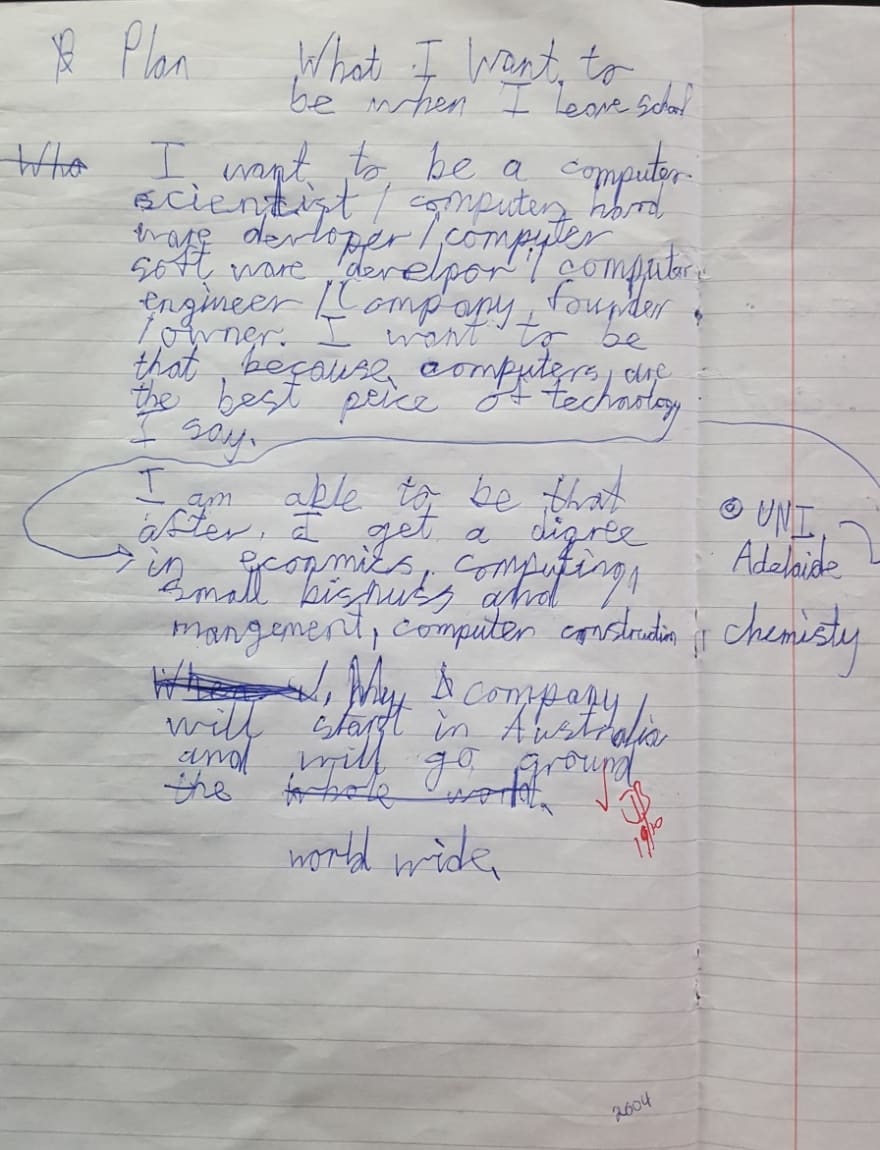 Plan What I Want to
be when I Leave School
Who I want to be a computer
scientist / computer hard
ware devloper / computer
soft ware develpor / computer
engineer / Company founder
/ owner. I want to be
that because computers are
the best peice of technology
I say.
I am able to be that
after I get a digree
in econmics, computing,
small bisnuss and
mangement, computer construction, chemisty
UNI
Adelaide
When My company
will start in Australia
and will go ground
the whole world.
JB
19/10
world wide.
2004